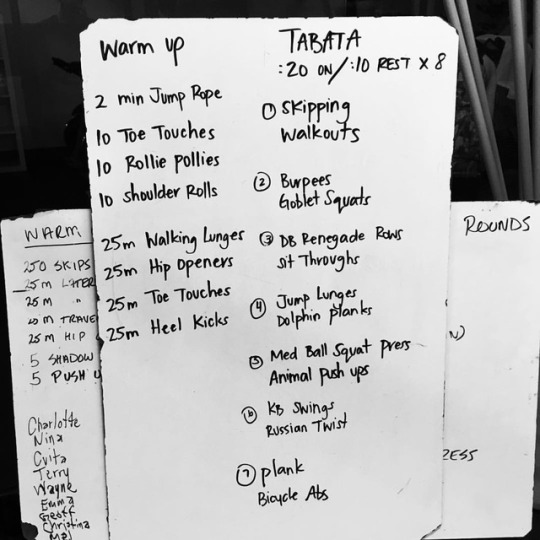 Warm up
2 min Jump Rope
10 Toe Touches
10 Rollie Pollies
10 shoulder Rolls
25m Walking Lunges
25m Hip Openers
25m Toe Touches
25m Heel Kicks
TABATA
:20 ON/:10 REST X 8
① Skipping
Walkouts
② Burpees
Goblet Squats
③ DB Renegade Rows
Sit Throughs
④ Jump Lunges
Dolphin Planks
⑤ Med Ball Squat Press
Animal Push ups
⑥ KB Swings
Russian Twist
⑦ plank
Bicycle Abs
WARM
250 SKIPS
25m LATER
25m "
25m HIP
5 SHADOW
5 PUSH U
Charlotte
Nina
Cvita
Terry
Wayne
Emma
Geoff
Christina
Mal
ROUNDS